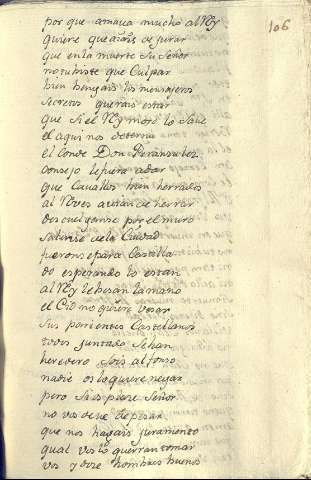 106
por que amaua mucho al Rey
quiere que aiais de jurar
que en la muerte su Señor
no tubiste que Culpar
bien bengais los mensajeros
secretos querais estar
que si el Rey moro lo saue
el aqui nos deterna
el Conde Don Peranzulez
consejo le fuera a dar
que Cauallos bien herrados
al Reues auian de herrar
descuelganse por el muro
salense de la Ciudad
fueronse para Castilla
do esperando lo estan
al Rey le besan la mano
el Cid no quiere besar
sus parientes Castellanos
todos juntado se han
heredero sois alfonso
nadie os lo quiere negar
pero si os place Señor
no vos deue de pesar
que nos hagais juramento
qual vos lo querran tomar
vos y doze hombres buenos